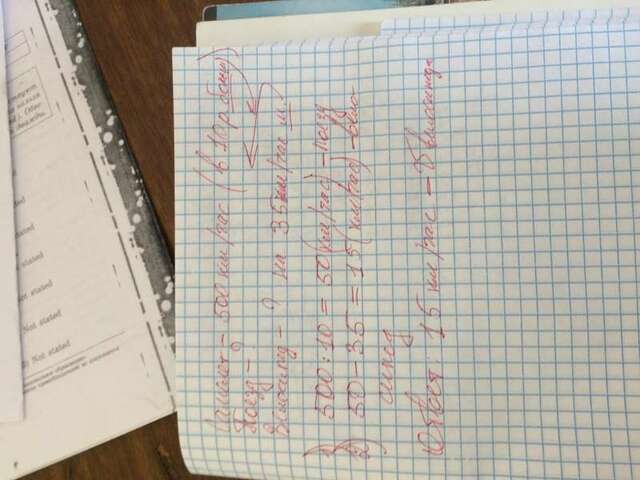 Самолет - 500 км/час (в 10р. больше)
Поезд - ?
Велосипед - ? на 35 км/час м.
1) 500:10=50(км/час) - поезд
2) 50-35=15(км/час) - вело-
сипед
Ответ: 15 км/час - велосипед
Not stated
Not stated
Not stated